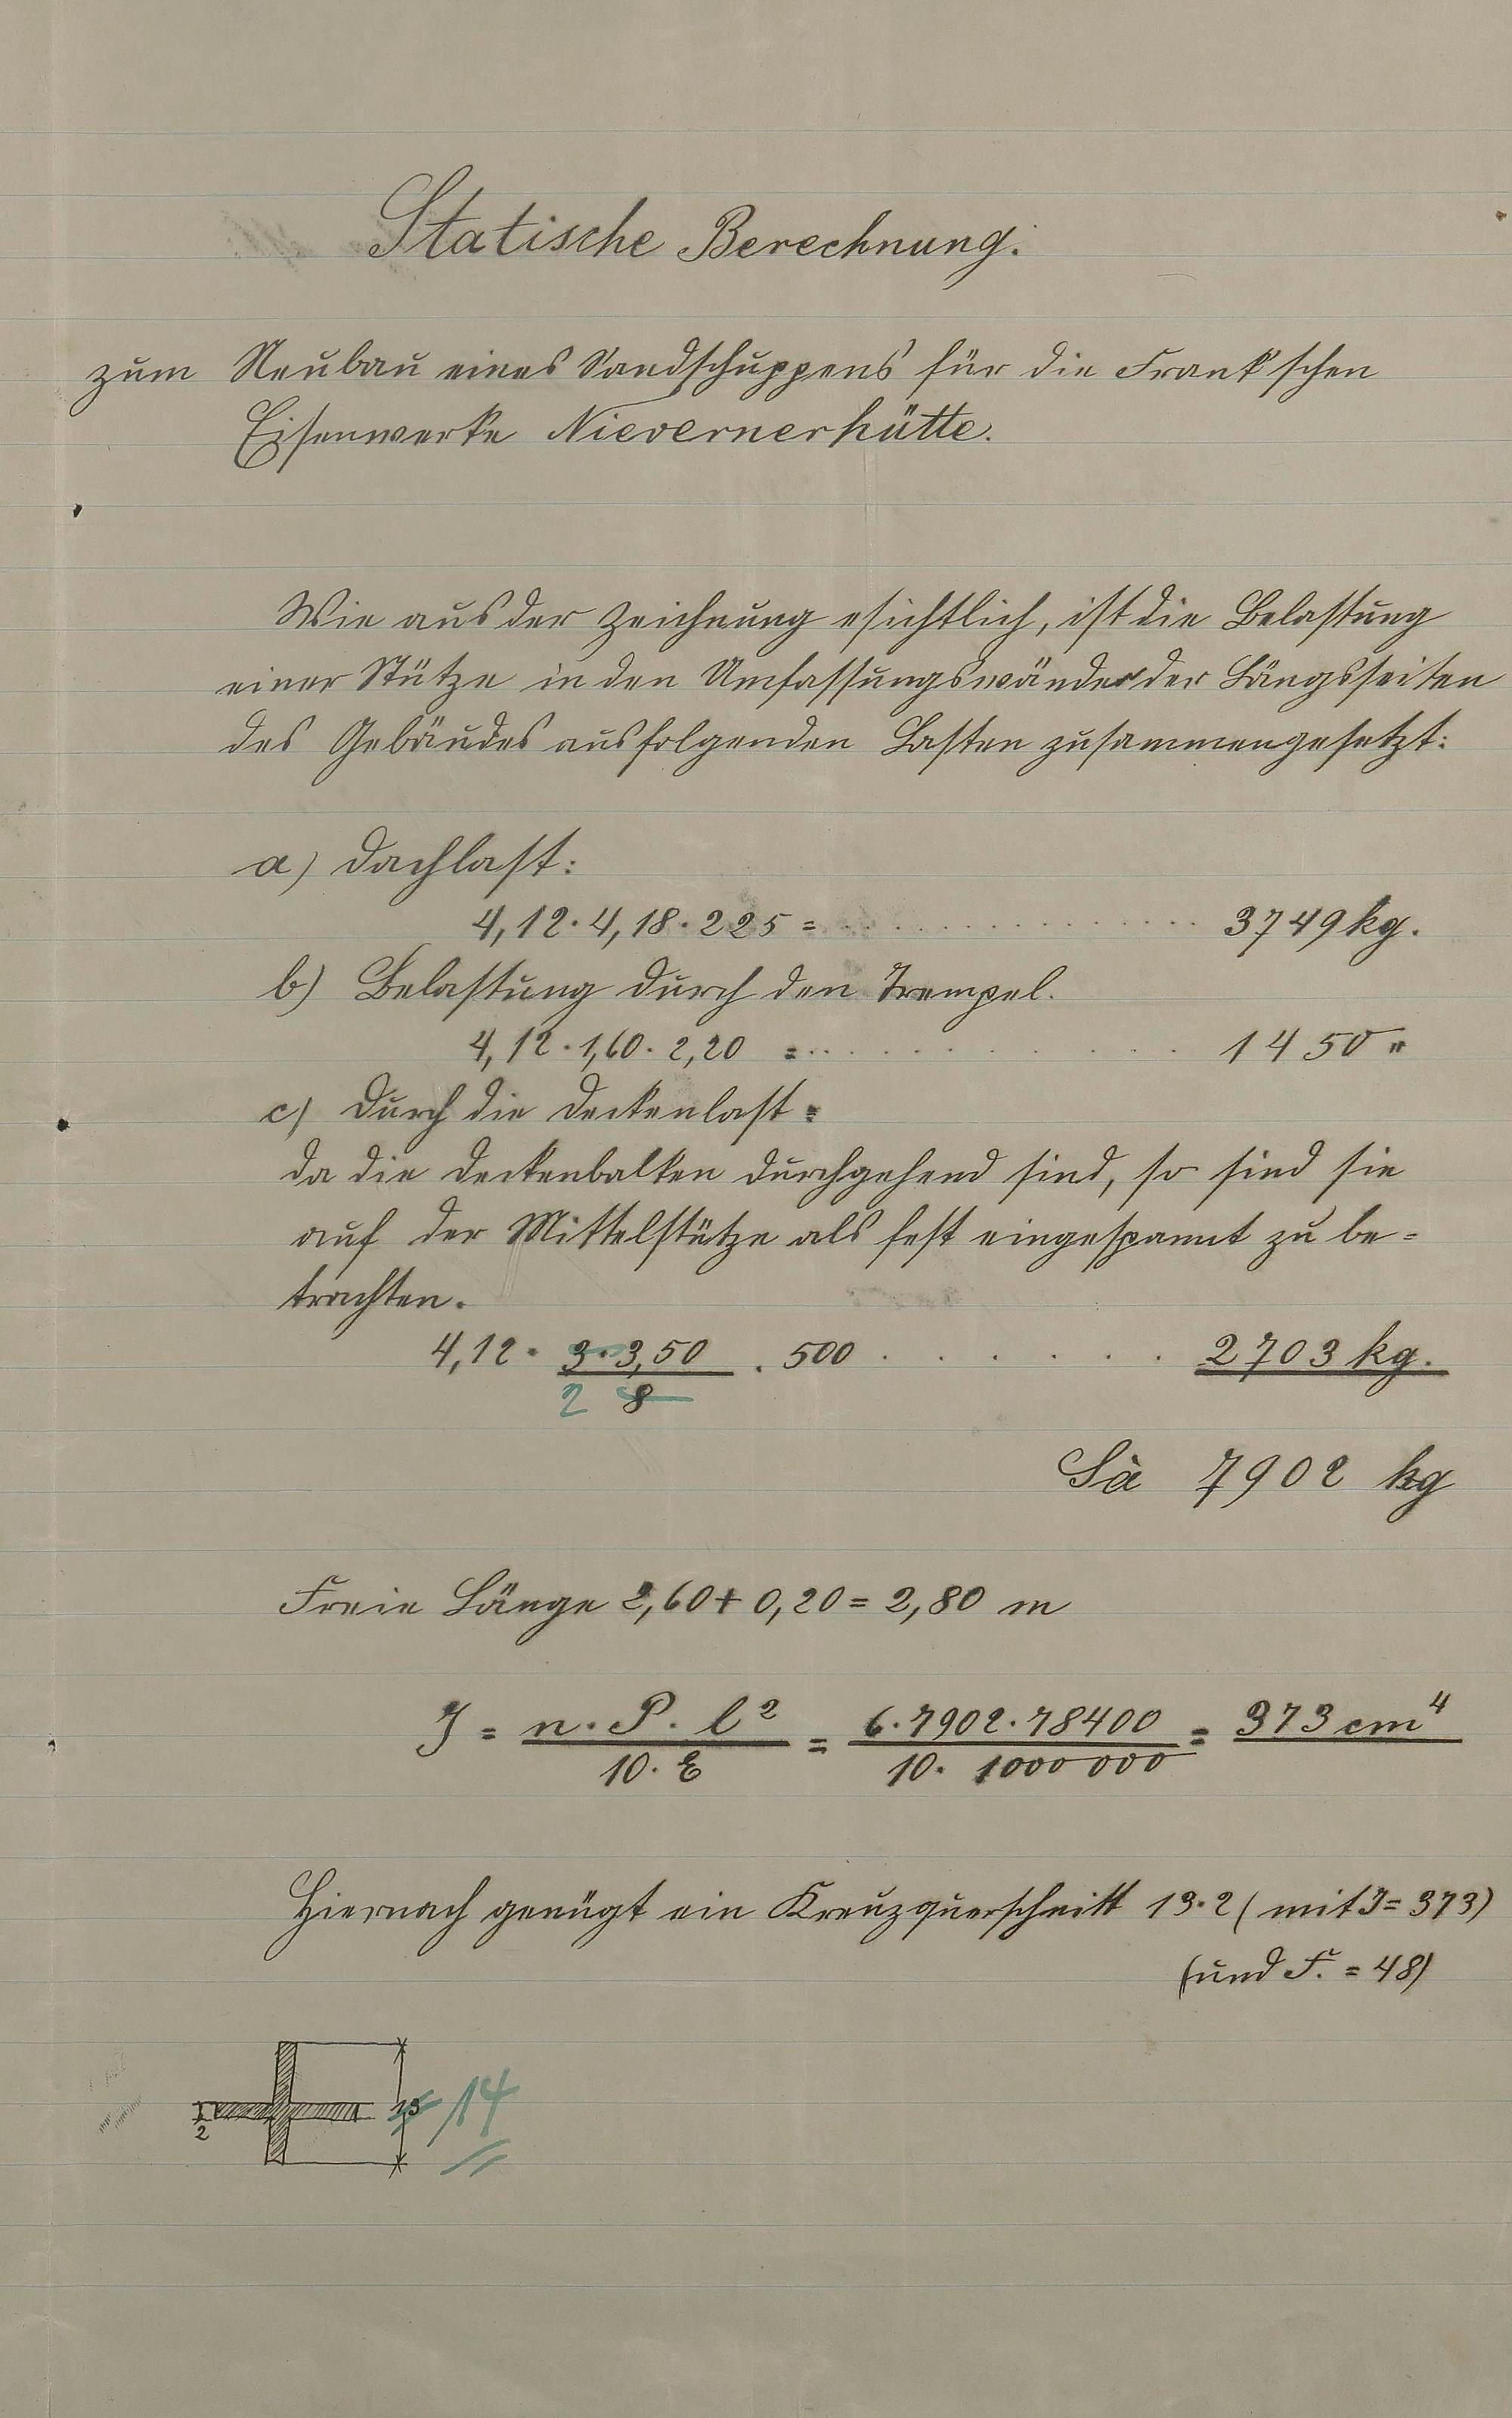 Statische Berechnung.
zum Neubau eines Sandschuppens für die Frank'schen
Eisenwerke Nievernerhütte.
Wie aus der Zeichnung esichtlich, ist die Belastung
einer Stütze in den Umfassungswänden der Längsseiten
des Gebäudes aus folgenden Lasten zusammengesetzt:
a) Dachlast:
4,12 · 4,18 · 225 = . . . . . . . . . . . . . . . 3749 kg.
b) Belastung durch den Trempel.
4,12 · 1,60 · 2,20 = . . . . . . . . . . 1450 "
c) durch die Deckenlast:
da die Deckenbalken durchgehend sind, so sind sie
auf der Mittelstütze als fest eingespannt zu be=
trachten.
4,12 · 3 · 3,50 . 500 . . . . . . 2703 kg.
2 8
Sà 7902 kg
Freie Länge 2,60 + 0,20 = 2,80 m
J = n · P · l² = 6 · 7902 · 78400 = 373 cm⁴
10 · E 10 · 1000 000
Hiernach genügt ein Kreuzquerschnitt 13 · 2 ( mit J = 373)
(und F. = 48)
13 14
2